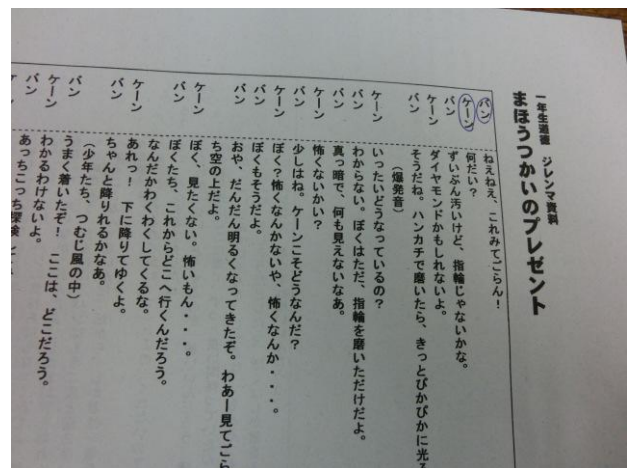 一年生道徳 ジレンマ資料
まほうつかいのプレゼント
バン ねえねえ、これみてごらん！
ケーン 何だい？
バン ずいぶん汚いけど、指輪じゃないかな。
ケーン ダイヤモンドかもしれないよ。
バン そうだね。ハンカチで磨いたら、きっとぴかぴかに光
（爆発音）
ケーン いったいどうなっているの？
バン わからない。ぼくはただ、指輪を磨いただけだよ。
バン 真っ暗で、何も見えないなあ。
ケーン 怖くないかい？
バン 少しはね。ケーンこそどうなんだ？
ケーン ぼく？怖くなんかないや、怖くなんか・・・。
バン ぼくもそうだよ。
バン おや、だんだん明るくなってきたぞ。わあー見てごら
ち空の上だよ。
ケーン ぼく、見たくない。怖いもん・・・。
バン ぼくたち、これからどこへ行くんだろう。
なんだかわくわくしてくるな。
ケーン あれっ！ 下に降りてゆくよ。
バン ちゃんと降りれるかなあ。
（少年たち、つむじ風の中）
バン うまく着いたぞ！ ここは、どこだろう。
ケーン わかるわけないよ。
バン あっちこっち探検